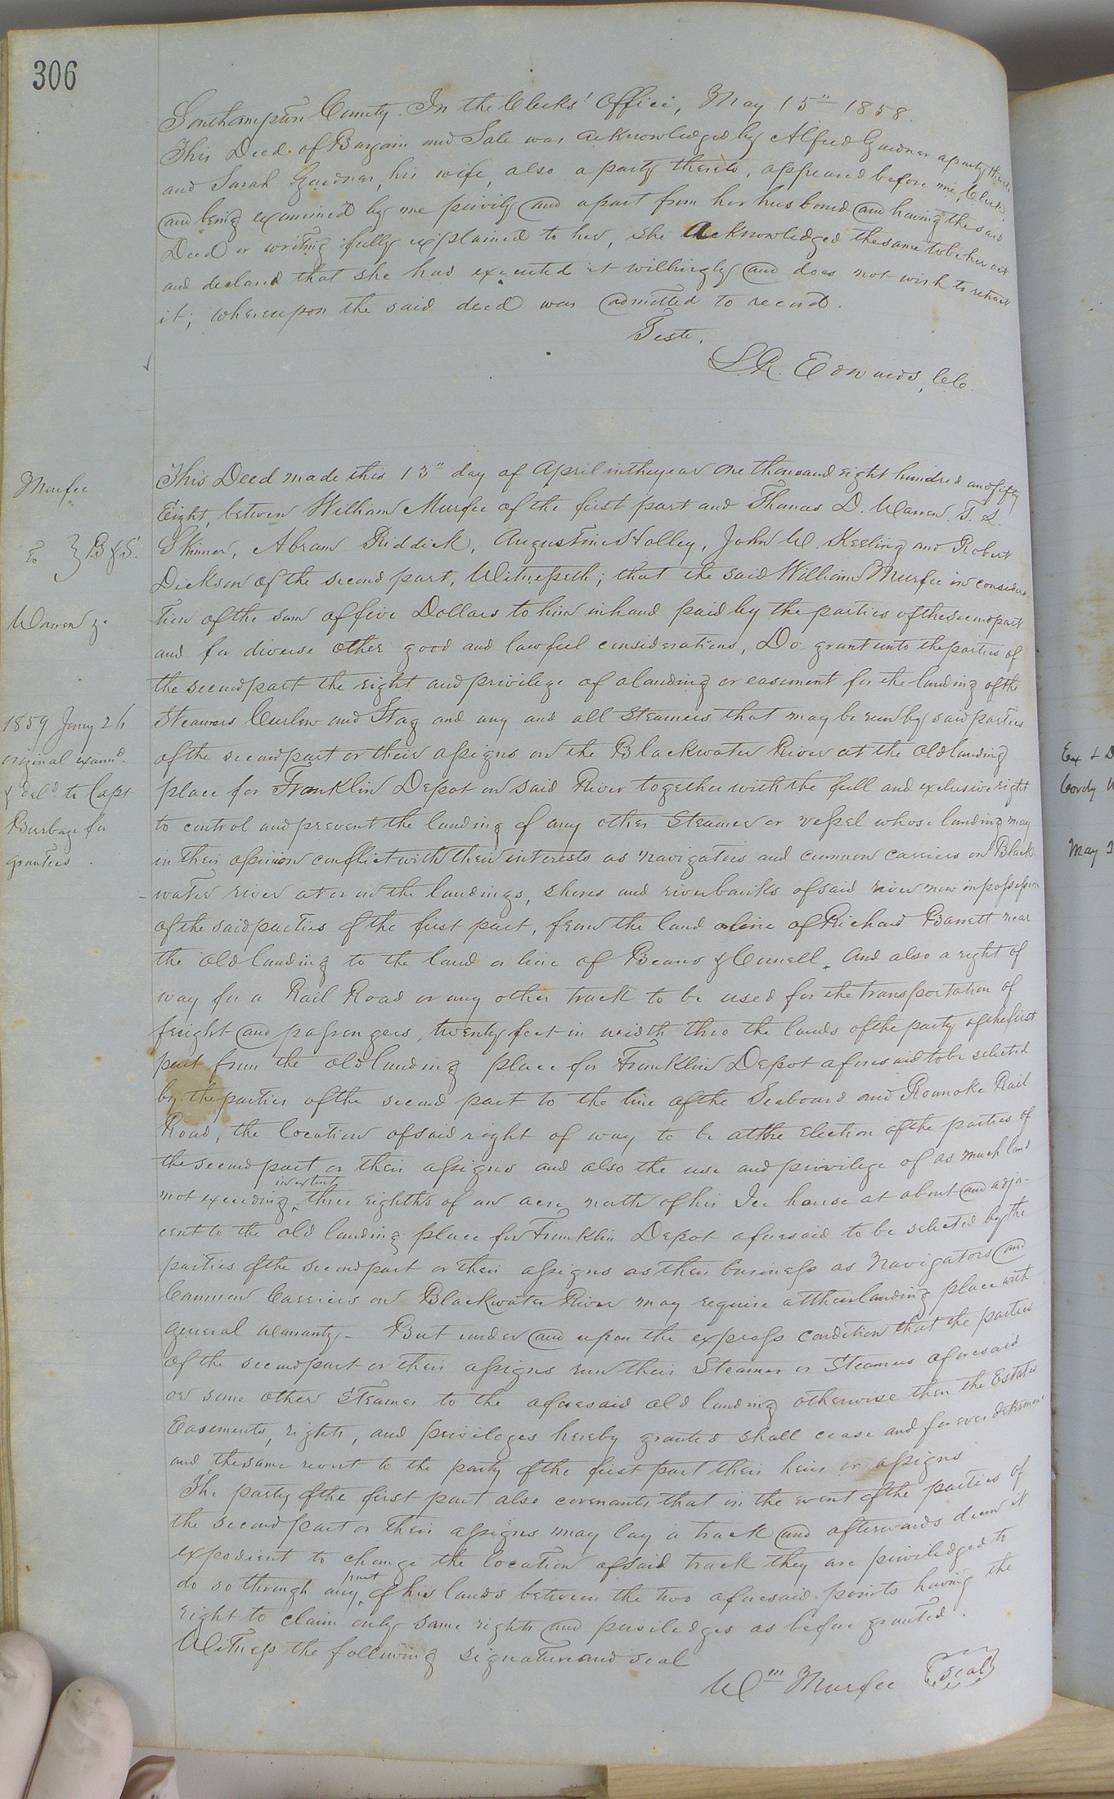 306
Southampton County. In the Clerks' Office, May 15th 1858.
This Deed of Bargain and Sale was acknowledged by Alfred Gardner a party thereto
and Sarah Gardner, his wife, also a party thereto, appeared before me, Clerk,
and being examined by me privily and apart from her husband and having the said
Deed or writing fully explained to her, she acknowledged the same to be her act
and declared that she had executed it willingly and does not wish to retract
it; whereupon the said deed was admitted to record.
Teste,
L. R. Edwards, C.C.
Murfee
to } B & S.
Warren &c
1859 Jany 26
original examd.
& deld. to Capt
Burbage for
grantees.
This Deed made this 13th day of April in the year one thousand eight hundred and fifty
Eight, between William Murfee of the first part and Thomas D. Warren, T. S.
Skinner, Abram Riddick, Augustine Holley, John W. Keeling and Robert
Dickson of the second part, Witnesseth; that the said William Murfee in considera
tion of the sum of five Dollars to him in hand paid by the parties of the second part
and for diverse other good and lawful considerations, Do grant unto the parties of
the second part the right and privilege of a landing or easement for the landing of the
Steamers Curlew and Stag and any and all Steamers that may be run by said parties
of the second part or their assigns on the Blackwater River at the old landing
place for Franklin Depot on said River together with the full and exclusive right
to control and prevent the landing of any other Steamer or vessel whose landing may
in their opinion conflict with their interests as navigators and common carriers on Black
-water river at or on the landings, shores and riverbanks of said river now in possession
of the said parties of the first part, from the land or line of Richard Barrett near
the old landing to the land or line of Beans & Cunell. And also a right of
way for a Rail Road or any other track to be used for the transportation of
freight and passengers, twenty feet in width thro the lands of the party of the first
part from the old landing place for Franklin Depot aforesaid to be selected
by the parties of the second part to the line of the Seaboard and Roanoke Rail
Road, the location of said right of way to be at the Election of the parties of
the second part or their assigns and also the use and privilege of as much land
not exceeding in extent three eighths of an acre north of his Ice house at about and adja-
cent to the old landing place for Franklin Depot aforesaid to be selected by the
parties of the second part or their assigns as their business as Navigators and
Common Carriers on Blackwater River may require at their landing place with
general warranty - But under and upon the express condition that the parties
of the second part or their assigns run their Steamer or Steamers aforesaid
or some other Steamer to the aforesaid old landing otherwise then the Estates
Easements, rights, and privileges hereby granted shall cease and forever determine
and the same revert to the party of the first part their heirs or assigns
The party of the first part also covenants that in the event of the parties of
the second part or their assigns may lay a track and afterwards deem it
expedient to change the location of said track they are priviledged to
do so through any part of his lands between the two aforesaid points having the
right to claim only same rights and priviledges as before granted.
Witness the following signature and seal
Wm Murfee {Seal}
Ex + D
Cordy
May 2